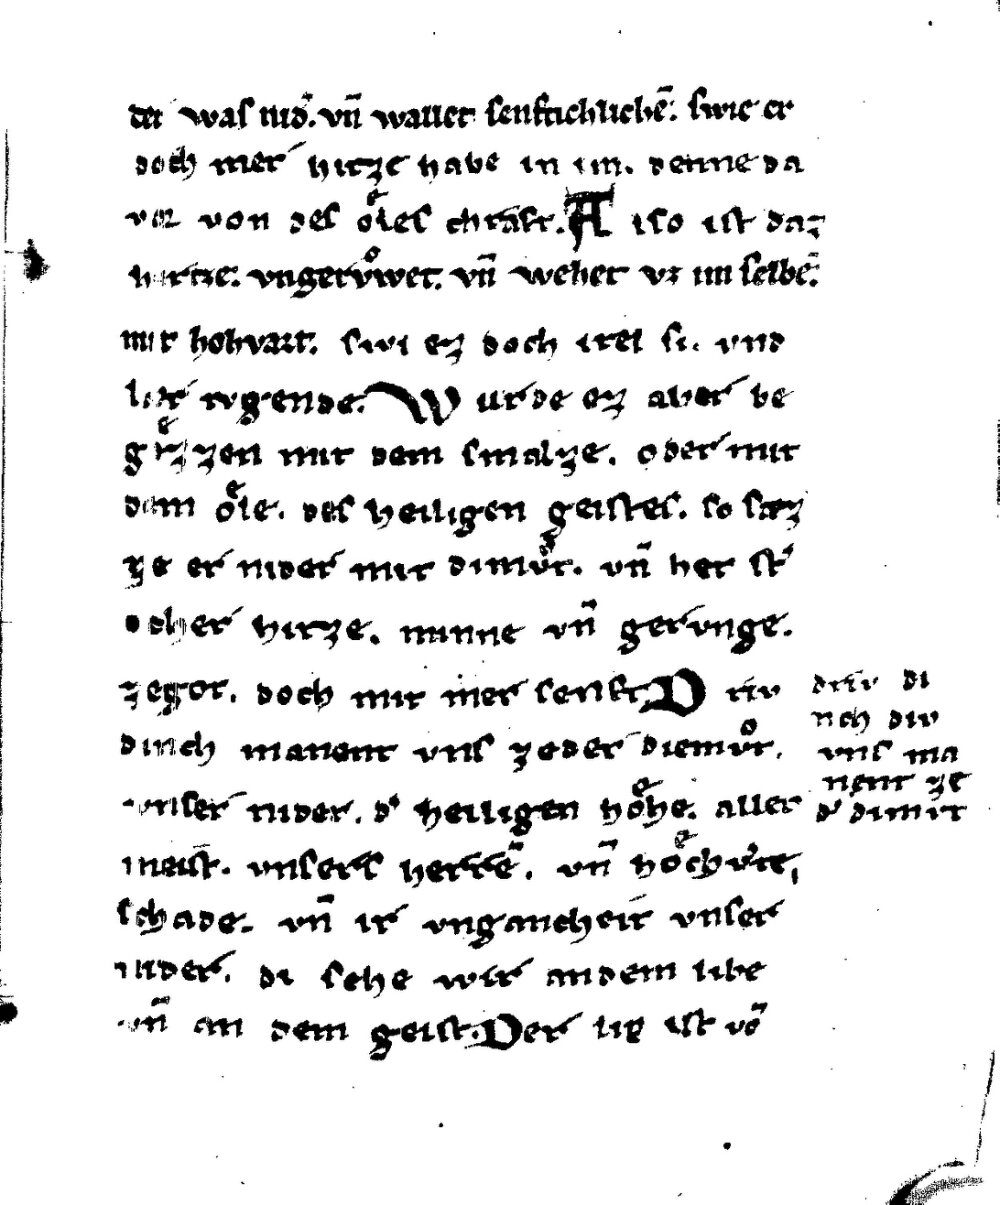 der waſ nid̾. vn̄ wallet ſenftichlichē. ſwie er
doch mer hitze habe in im. denne da
vor von deſ oͤleſ chraft. Alſo iſt daz
hertze. vngervͦwet. vn̄ wehet vz im ſelbē.
mit hohvart. ſwi ez doch itel ſi. vnd
lær tvgende. Wurde ez aber be
gozzen mit dem ſmalze. oder mit
dem oͤle. deſ heiligen geiſteſ. ſo ſæz
ze er nider mit dimvͤt. vn̄ het ſt̾
cher hitze. minne vn̄ gervnge.
ze got. doch mit mer ſenft. Driv
dinch manent vnſ ze der diemvͦt.
vnſer nider. d̾ heiligen hoͤhe. aller
meiſt. vnſerſ herrē. vn̄ hoͤchvͤrt,
ſchade. vn̄ ir vngancheit vnſer
nider. di ſehe wir an dem libe
vn̄ an dem geiſt. Der lip iſt vō
driv di
nch div
vnſ ma
nent ze
d̾ dimvt